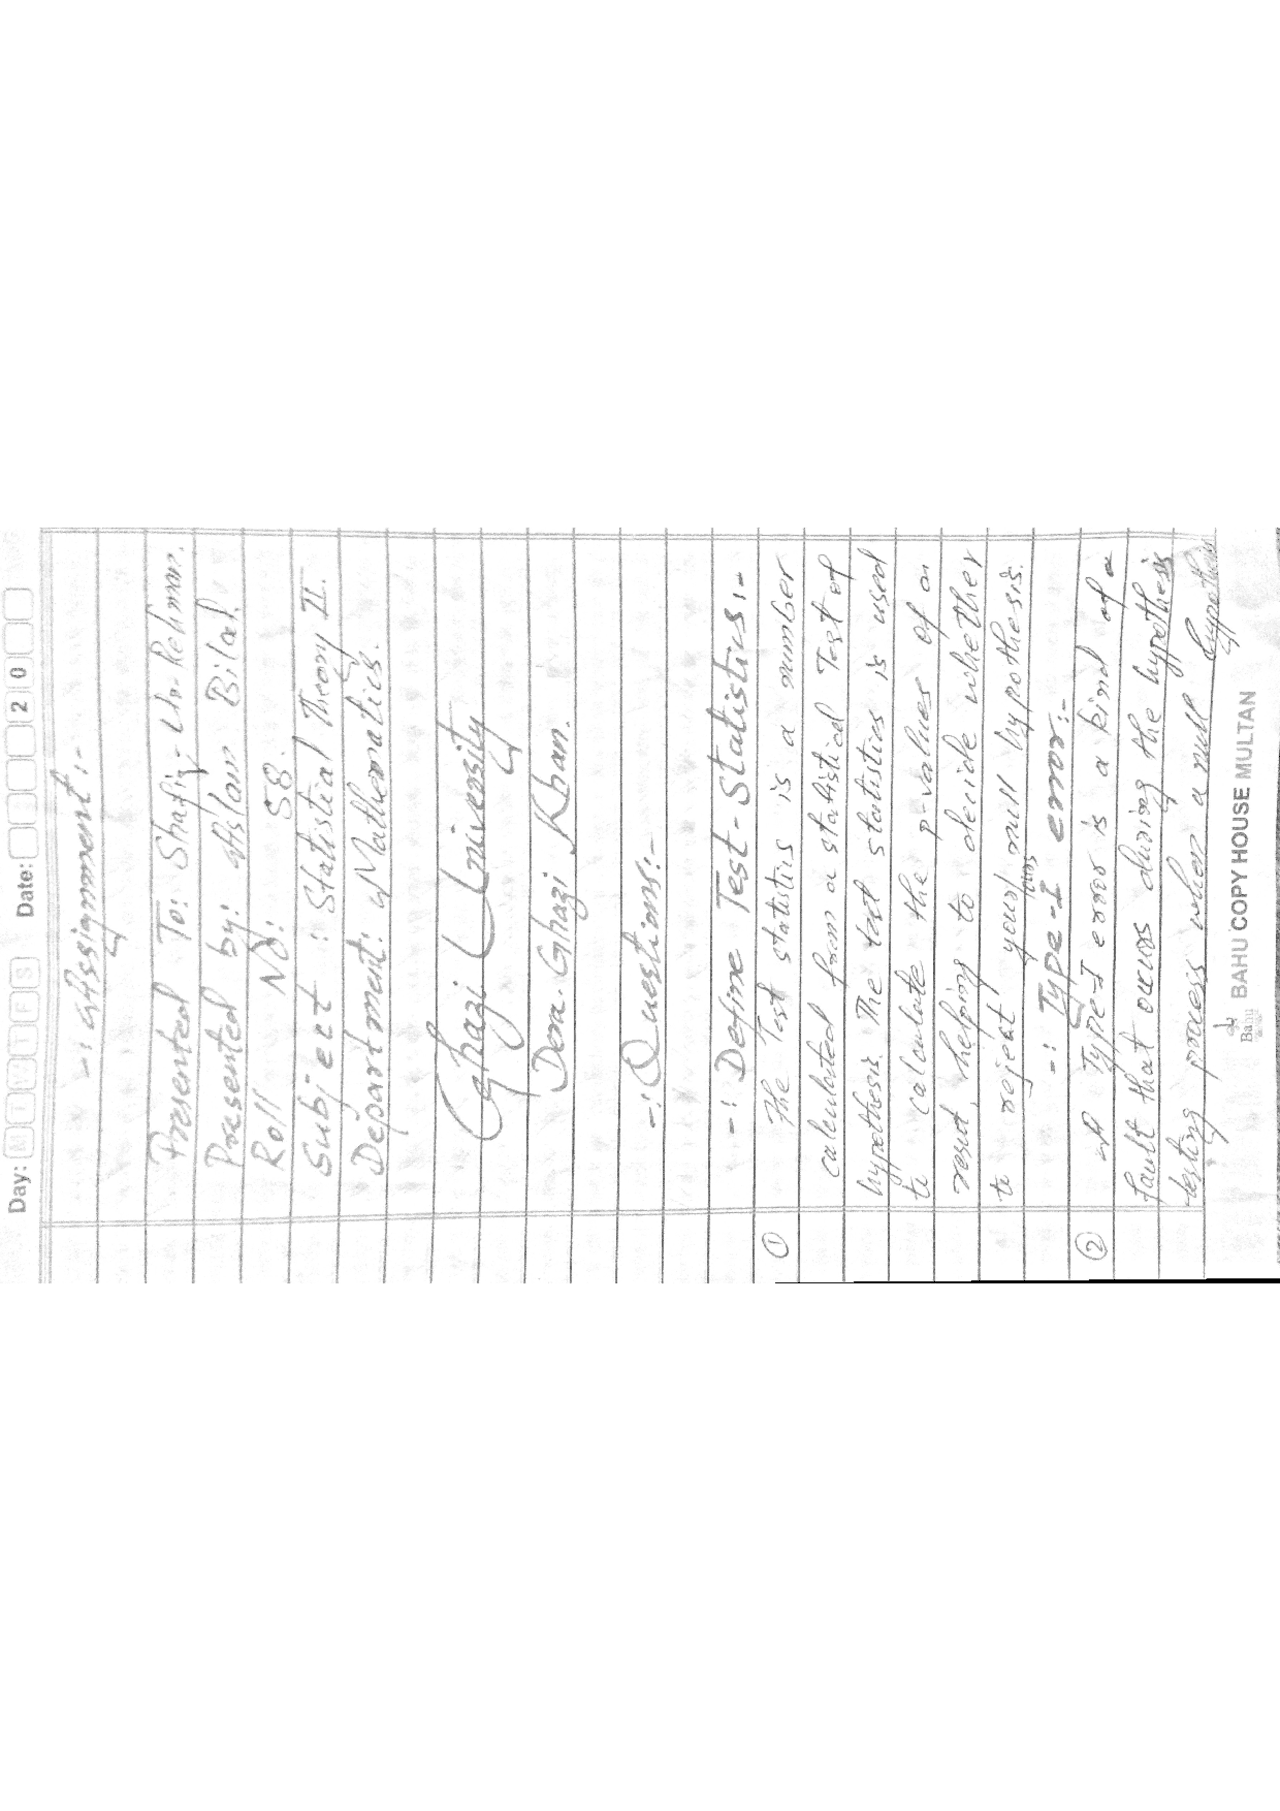 Day: M T W T F S Date: 2 0
-: Assignment :-
Presented To: Shafiq-Ur-Rehman.
Presented by: Aslam Bilal.
Roll No: 58.
Subject : Statistial Theory II.
Department: Mathematics.
Ghazi University
Dera. Ghazi Khan.
-: Questions:-
-: Define Test-Statistics:-
① The Test statistics is a number
calculated from a statistical Test of
hypothesis. The test statistics is used
to calculate the p-values of
result, helping to decide whether
to reject your null hypothesis.
-: Type-I error:-
② A Type-I error is a kind of a
fault that occurs during the hypothesis
testing process when a null hypothesis
Bahu BAHU COPY HOUSE MULTAN